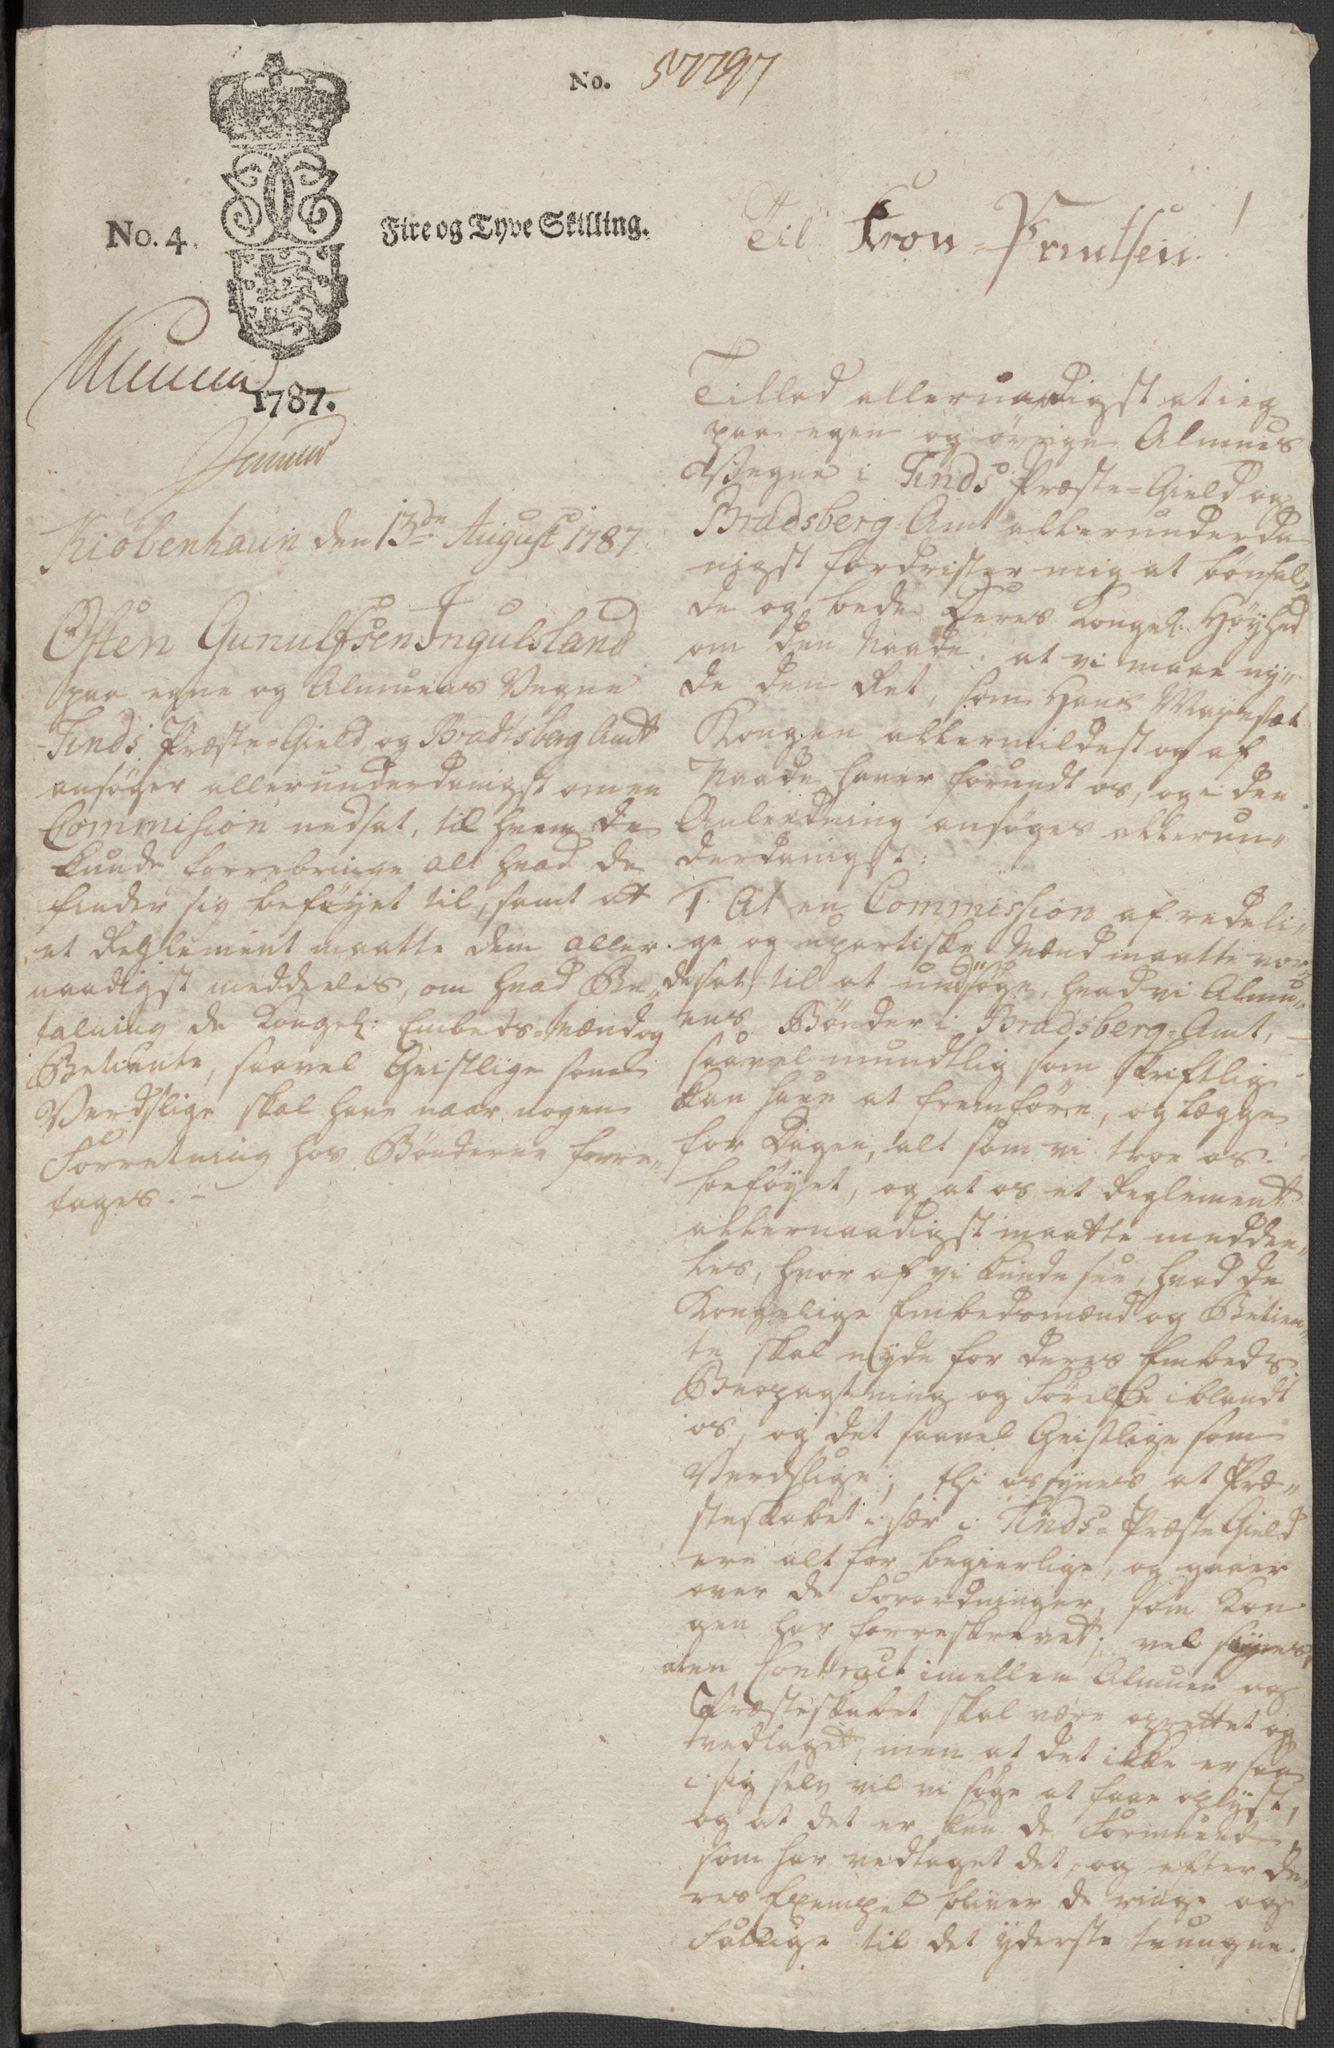 No. 57797
No. 4.
Fire og Tyve Skilling.
1787.
Kiöbenhaun den 13de August 1787
Østen Gunulfsen Ingulsland
paa egne og Almuens Vegne
Tinds Præste-Gield og Bradtsberg Amt
ansøger allerunderdanigst om en
Commission nedsat, til hvem de
kunde forrebringe alt hvad de
finder sig beføyet til, samt at
et Reglement maatte dem aller-
naadigst meddeeles, om hvad Be-
talning de Kongel: Embeds-Mænd og
Betiente, saavel Geistlige som
Verdslige skal have naar nogen
Forretning hos Bønderne forre-
tages.-
Til Kron-Printsen!
Tillad allernaadigst at ieg
paa egen og øvrige Almues
Vegne i Tinds Præste-Gield og
Bradsberg-Amt allerunderda
nigst fordrister mig at bønfal-
de og bede Deres Kongel. Høyhed
om den Naade, at vi maae ny-
de den Ret, som Hans Mayestæt
Kongen allermildest og af
Naade haver forundt os, og i den
Anledning ansøges allerun-
derdanigst:
1. At en Commission af redeli-
ge og upartiske Mænd maatte vor-
de sat til at undsøge, hvad vi Almu-
ens Bønder i Bradsberg-Amt,
saavel mundtlig som skriftlig
kan have at fremføre, og lægge
for Dagen, alt som vi troe os
beføyet, og at os et Reglement
allernaadigst maatte meddee-
les, hvor af vi kunde see, hvad de
Kongelige Embedsmænd og Betien-
te skal nyde for deres Embeds
og Førelse iblandt
os, og det saavel Geistlige som
Verdslige; thi os synes at Præ-
steskabet i sær i Tinds-Præste Gield
ere alt for begierlige, og gaaer
over de Forordninger, som Kon
gen har forreskrevet; vel synes,
at en Contract imellem Almuen og
Præsteskabet skal være oprettet og
vedtaget, men at det ikke er saa
i sig selv vil vi søge at faae oplyst,
og at det er kun de Formuende
som har vedtaget det, og efter De-
res Exempel bliver de ringe og
Fattige til det yderste tvungne.